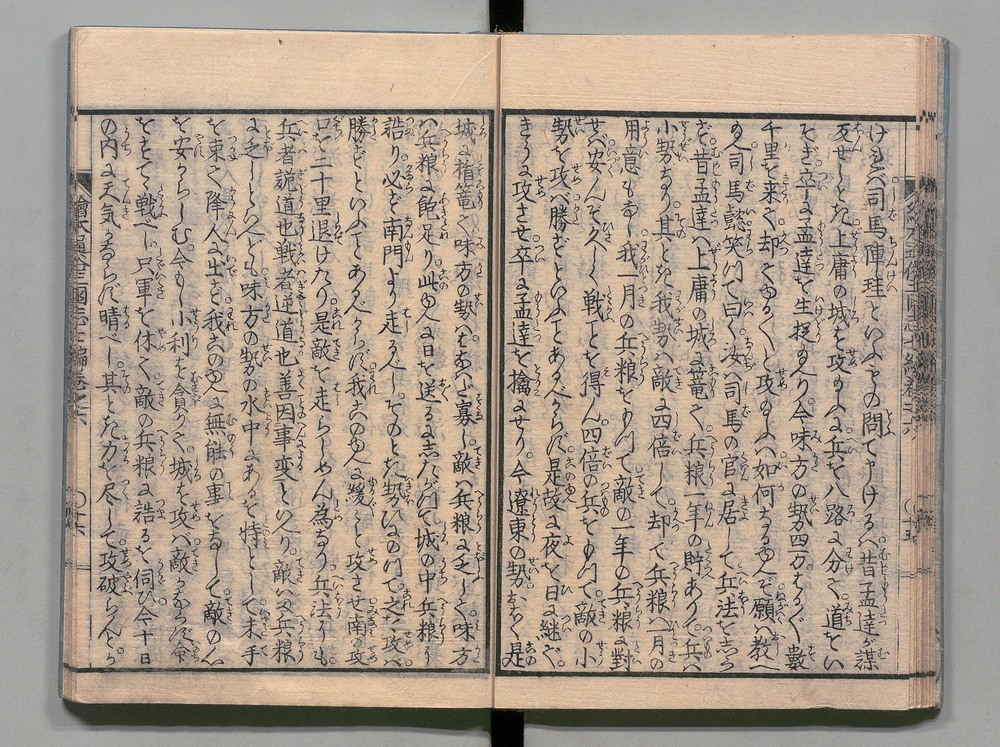 けれバ司馬陣珪といふもの問て申けるハ昔孟達が謀
反せしとた上庸の城を攻めんに兵を八路に分て道をい
そぎ卒に孟達を生捉りたり今味方の勢四万はるぐ數
千里を来て却てゆるくと攻めしハ如何なるゆへぞ願くハ教へ
司馬懿笑て曰く汝ハ司馬の官に居して兵法をしら
ず昔孟達ハ上庸の城に篭て兵粮一年の貯ありて兵ハ
小勢なり其とた我勢ハ敵に四倍して却て兵粮ハ一月の
用意もなし我一月の兵粮をもつて敵の一年の兵粮に對
せバ安んぞ久しく戦ことを得ん四倍の兵をもつて敵の小
勢を攻バ勝ずといふことあるべからず是故に夜を日に継で
きうに攻させ卒に孟達を擒にせり今遼東の勢おほく是
城に楯篭て味方の勢ハはなハだ寡し敵ハ兵粮に乏しく味方
ハ兵粮に飽足り此ゆへに日を送るにしたがつて城の中兵粮
詰り必ず南門より走るべしそのとた勢ひにのつて之を攻バ
勝ずといふことあるべからず我このゆへに緩々と攻させ南の攻
口を二十里退けたり是敵を走らしめん為なり兵法にも
兵者詭道也戦者逆道也善因事変といへり敵ハ又兵粮
に乏しといへども味方の勢の水中にあるを恃として未手
を束て降人に出ず我このゆへに無能の事をなして敵の心
を安からしむ今もし小利を貪て城を攻バ敵かならず命
をすてて戦べし只軍を休て敵の兵粮に詰るを伺ひ今十日
の内に天気かならず晴べし其とた力を尽して攻破らんとか